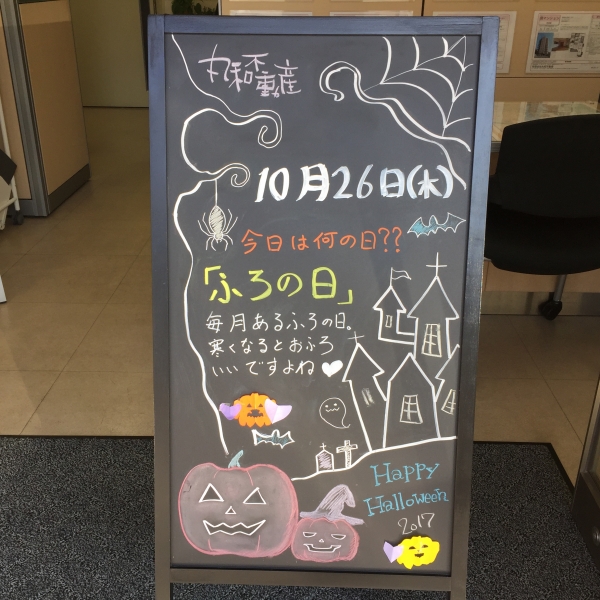 丸和不動産
10月26日(木)
今日は何の日??
「ふろの日」
毎月あるふろの日。
寒くなるとおふろ
いいですよね♥
Happy
Halloween
2017